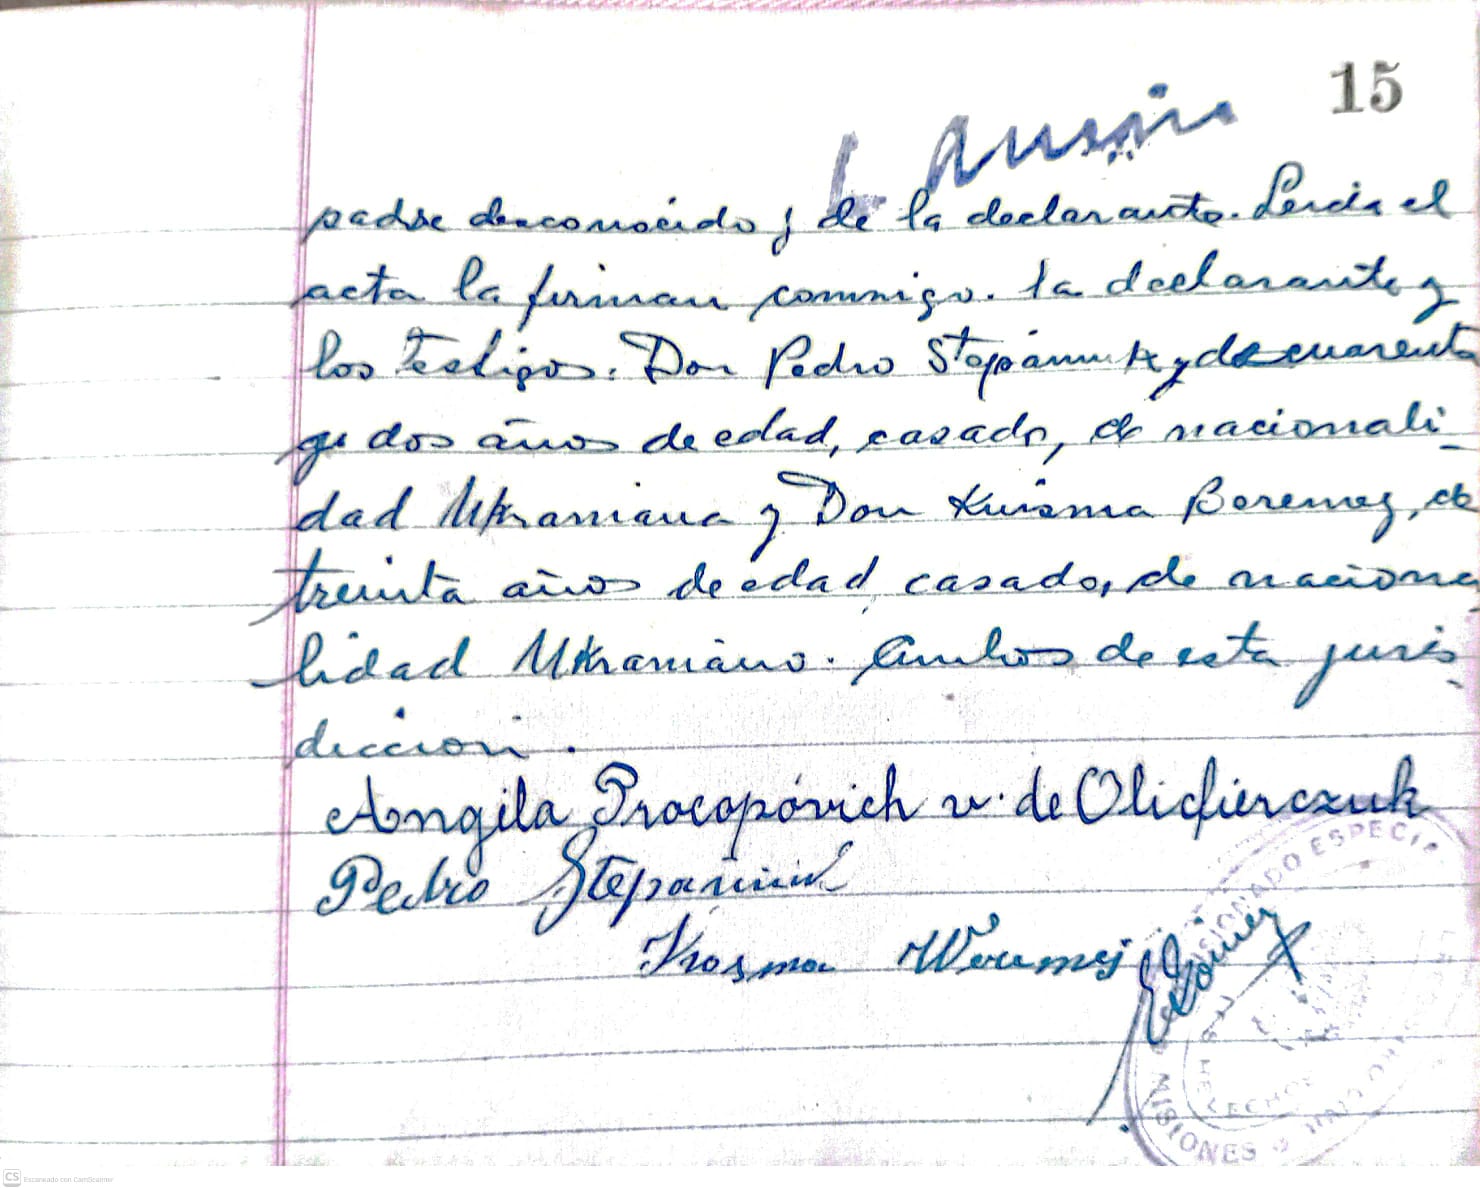 15
padre desconocido y de la declarante. Leida el
acta la firman conmigo. la declarante y
los Testigos. Don Pedro Stepanuk y de cuarenta
y dos años de edad, casado, de nacionali-
dad Ukraniana y Don Kuisma Boremey, de
treinta años de edad casado, de naciona-
lidad Ukraniano. Ambos de esta juris-
diccion.
Angila Procopóvich v. de Olicfierczuk
Pedro Stepaniuk
Kosma Weremej
EGomez
COMISIONADO ESPECIAL
MISIONES
CS Escaneado con CamScanner